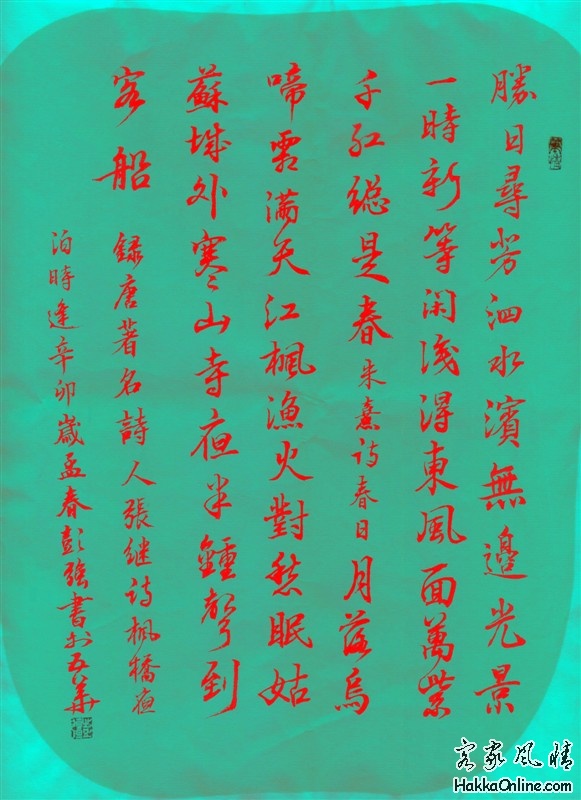 勝日尋芳泗水濱無邊光景
一時新等闲識得東風面萬紫
千红總是春朱熹诗春日月落烏
啼霜满天江楓漁火對愁眠姑
蘇城外寒山寺夜半鐘聲到
客船録唐著名詩人張继诗楓橋夜
泊時逢辛卯歲孟春彭强書於五華
客家风情
HakkaOnline.com